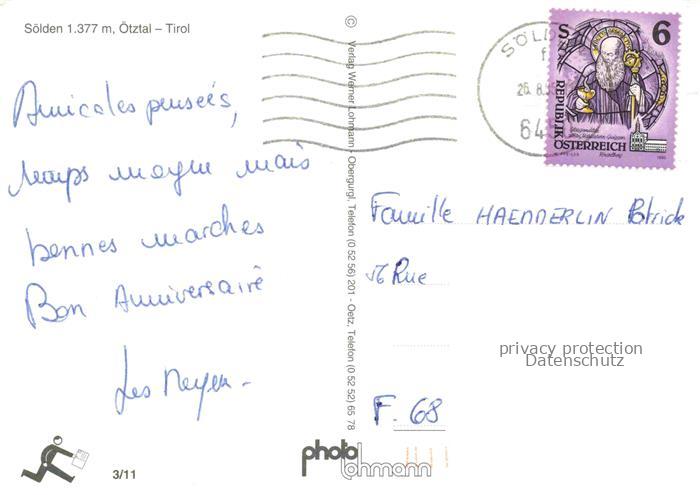 Sölden 1.377 m, Ötztal – Tirol
Amicales pensées,
temps moyen mais
bonnes marches
Bon Anniversaire
Les Meyer -
3/11
© Verlag Werner Lohmann - Obergurgl, Telefon (0 52 56) 201 - Oetz, Telefon (0 52 52) 65 78
photo
lohmann
SÖLD
26. 8.
64
S 6
REPUBLIK
ÖSTERREICH
Famille HAENDERLIN Patrick
56 Rue
privacy protection
Datenschutz
F. 68